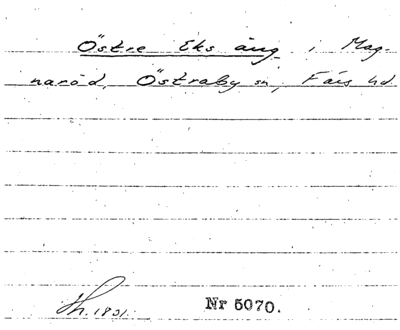 Östre Eks äng i Mag-
naröd, Östraby sn, Färs hd
Sk. 1831.
Nr 5070.